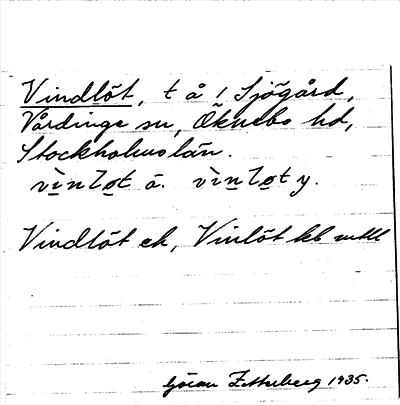 Vindlöt, t å 1 Sjögård,
Vårdinge sn, Öknebo hd,
Stockholms län.
vìnlo̲t ä. vìnlo̲t y.
Vindlöt ek, Vinlöt kb
Göran Zetterberg 1935.